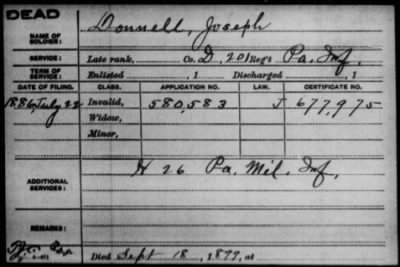 DEAD
NAME OF SOLDIER: Donnell, Joseph
SERVICE: Late rank, Co. D, 201 Reg't Pa. Inf.
TERM OF SERVICE: Enlisted , 1 Discharged , 1
DATE OF FILING. CLASS. APPLICATION NO. LAW. CERTIFICATE NO.
1886, July 22 Invalid, 580,583 J 677,975
Widow,
Minor,
ADDITIONAL SERVICES: H 26 Pa. Mil. Inf,
REMARKS:
Died Sept 18, 1899, at